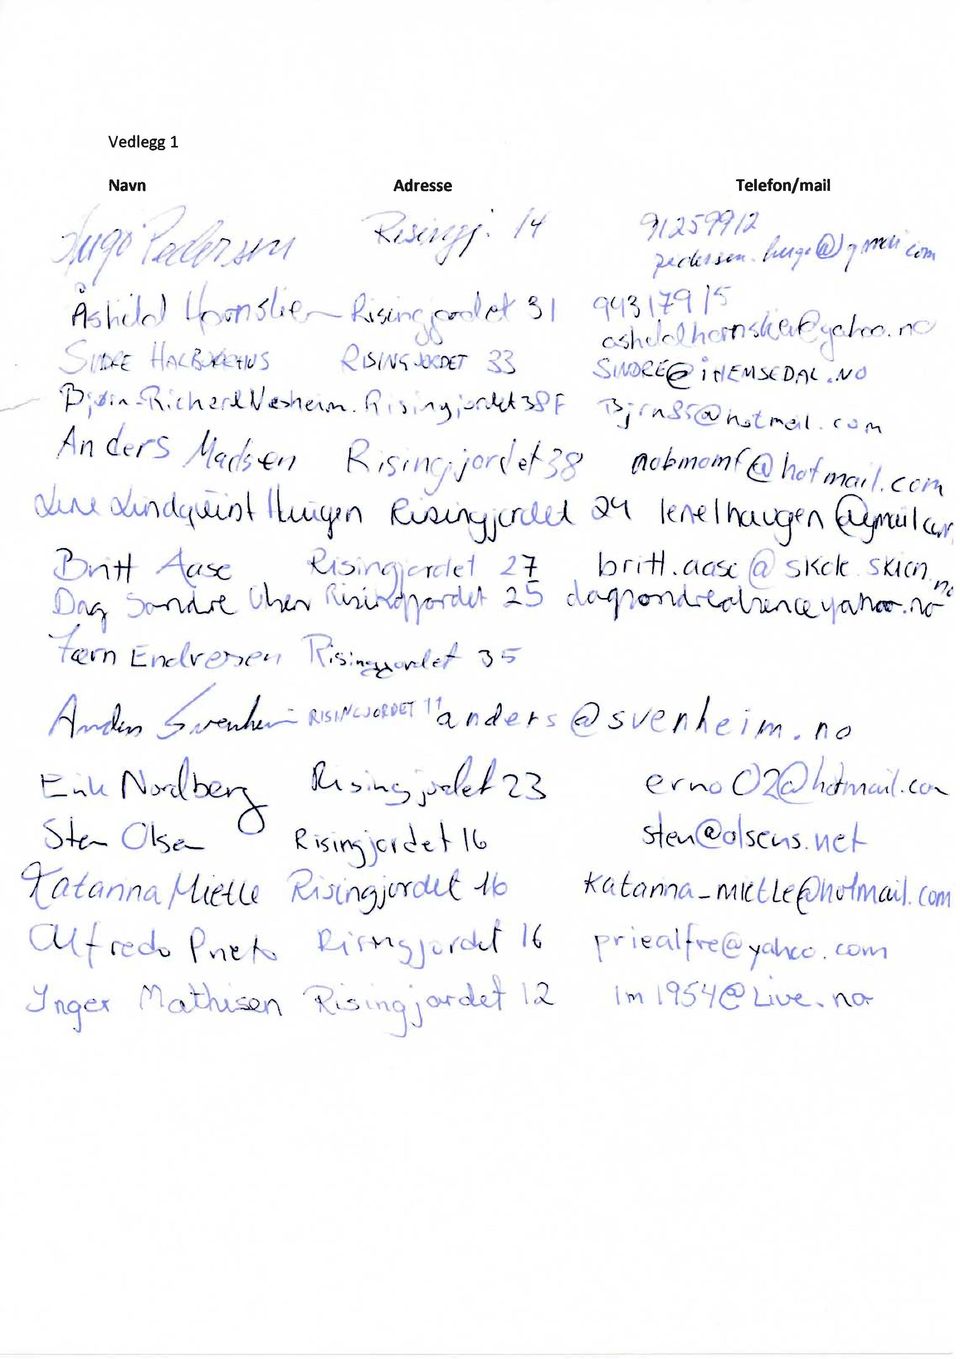 Vedlegg 1
Navn Adresse Telefon/mail
Hugo Pedersen Risingj. 14 91259912
pedersen.hugo@gmail.com
Åshild Risingjordet 31 94317915
RISINGJORDET 33 SINDRE@iHEMSEDAL.NO
Bjørn-Richard Risingjordet 38F Bjrn85@hotmail.com
Anders Madsen Risingjordet 38 nobmomf@hotmail.com
Line Lindquist Haugen Risingjordet 24 lenelhaugen@gmail.com
Britt Aase Risingjordet 27 britt.aase@
Dag Sondre Risingjordet 25
Endresen Risingjordet 35
Anders Svenheim RISINGJORDET 11 anders@svenheim.no
Erik Nordberg Risingjordet 23 erno02@hotmail.com
Sten Olsen Risingjordet 16 sten@olsens.net
Katarina Mietle Risingjordet 16 katarina_mietle@hotmail.com
Alfredo Prieto Risingjordet 16 priealfre@yahoo.com
Inger Mathisen Risingjordet 12 im1954@Live.no